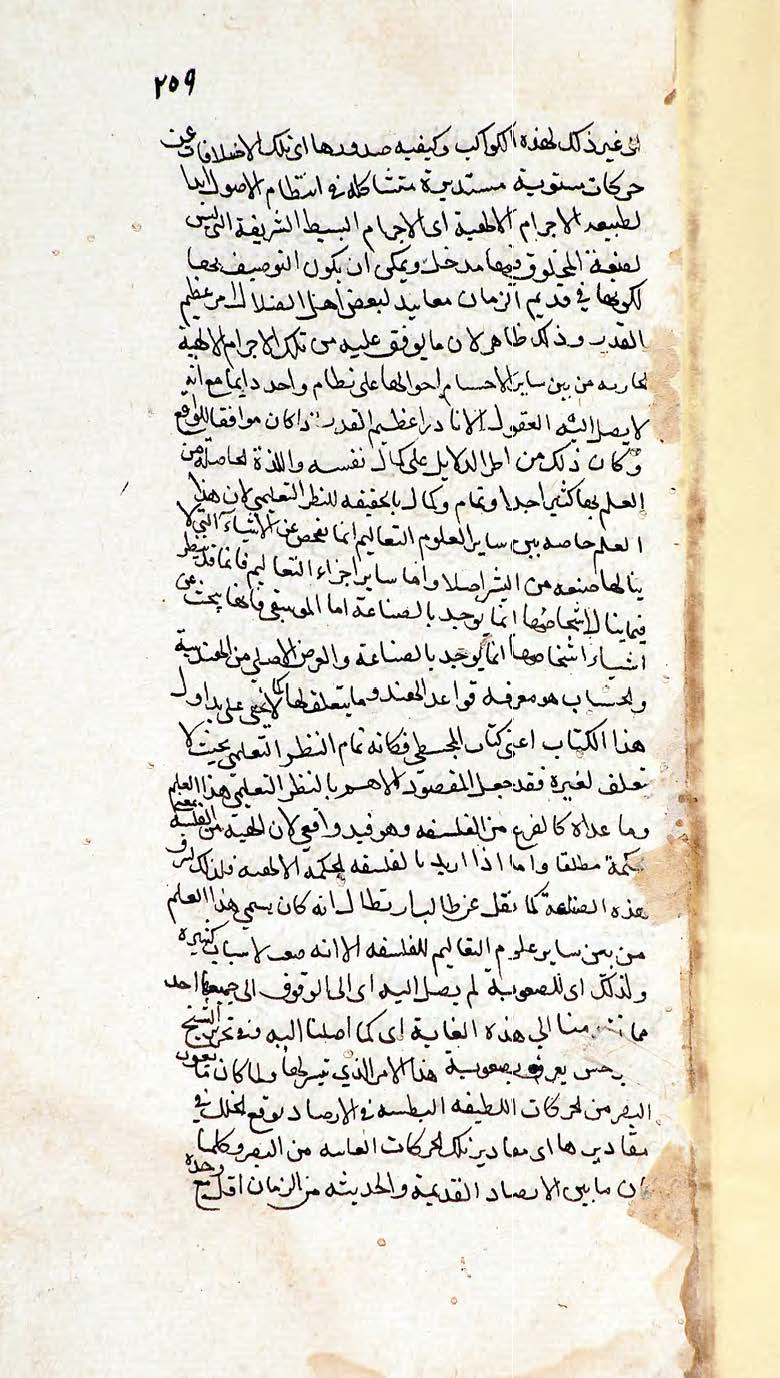 ٢٥٩
الى غير ذلك لهذه الكواكب وكيفيه صدورها اى تلك الاختلافات عن
حركات مستوية مستديرة متشاكله فى انتظام الاصول
لطبيعه الاجرام الالهية اى الاجرام البسيط الشريفة التى ليس
لصنعة المخلوق فيها مدخل ويمكن ان يكون التوصيف بها
لكونها فى قديم الزمان معابد لبعض اهل الضلال امر عظيم
القدر وذلك ظاهر لان ما يوفق عليه من تلك الاجرام الالهية
من بين ساير الاجسام احوالها على نظام واحد دايما مع انه
لا يصل اليه العقول الا نادرا عظيم القدر اذا كان موافقا للواقع
وكان ذلك من اجل الدلايل على كمال نفسه واللذة الحاصلة من
العلم بها كثير اجدا وتمام وكمال بالحقيقه للنظر التعليمى لان هذا
العلم خاصه بين ساير العلوم التعاليم انما يفحص عن الاشياء التى لا
ينالها صنعه من البشر اصلا واما ساير اجزاء التعاليم فانما قد ينظر
فيما ينال اشخاصها انما يوجد بالصناعة اما الموسيقى فانها يبحث عن
اشياء اشخاصها انما يوجد بالصناعة والغرض الاصلى من الهندسة
والحساب هو معرفه قواعد الهند وما يتعلق لها كما لا يخفى على
هذا الكتاب اعنى كتاب المجسطى فكانه تمام النظر التعليمى بحيث لا
تعلق لغيرة فقد جعل المقصود الاهم بالنظر التعليمى هذا العلم
وما عداه كالفرع من الفلسفه وهو قيد واقعى لان الهية من الفلسفة بمعنى
حكمة مطلقا واما اذا اريد بالفلسفه الحكمه الالهيه فلذلك لشرف
هذه الصناعة كما نقل عن انه كان يسمى هذا العلم
من بين ساير علوم التعاليم للفلسفه الا انه صعب لاسباب كثيرة
ولذلك اى للصعوبة لم يصل اليه اى الى الوقوف الى جميعها احد
مما منا الى هذه الغاية اى كما اصلنا اليه فى تحرير الشيخ
صعوبة هذا الامر الذى ولما كان ما يفوت
البصر من الحركات اللطيفه البطيه فى الارصاد يوقع الخلل فى
مقاديرها اى مقادير تلك الحركات الغايبه من البصر وكلما
كان ما بين الارصاد القديمة والحديثه من الزمان اقل مع وحدة